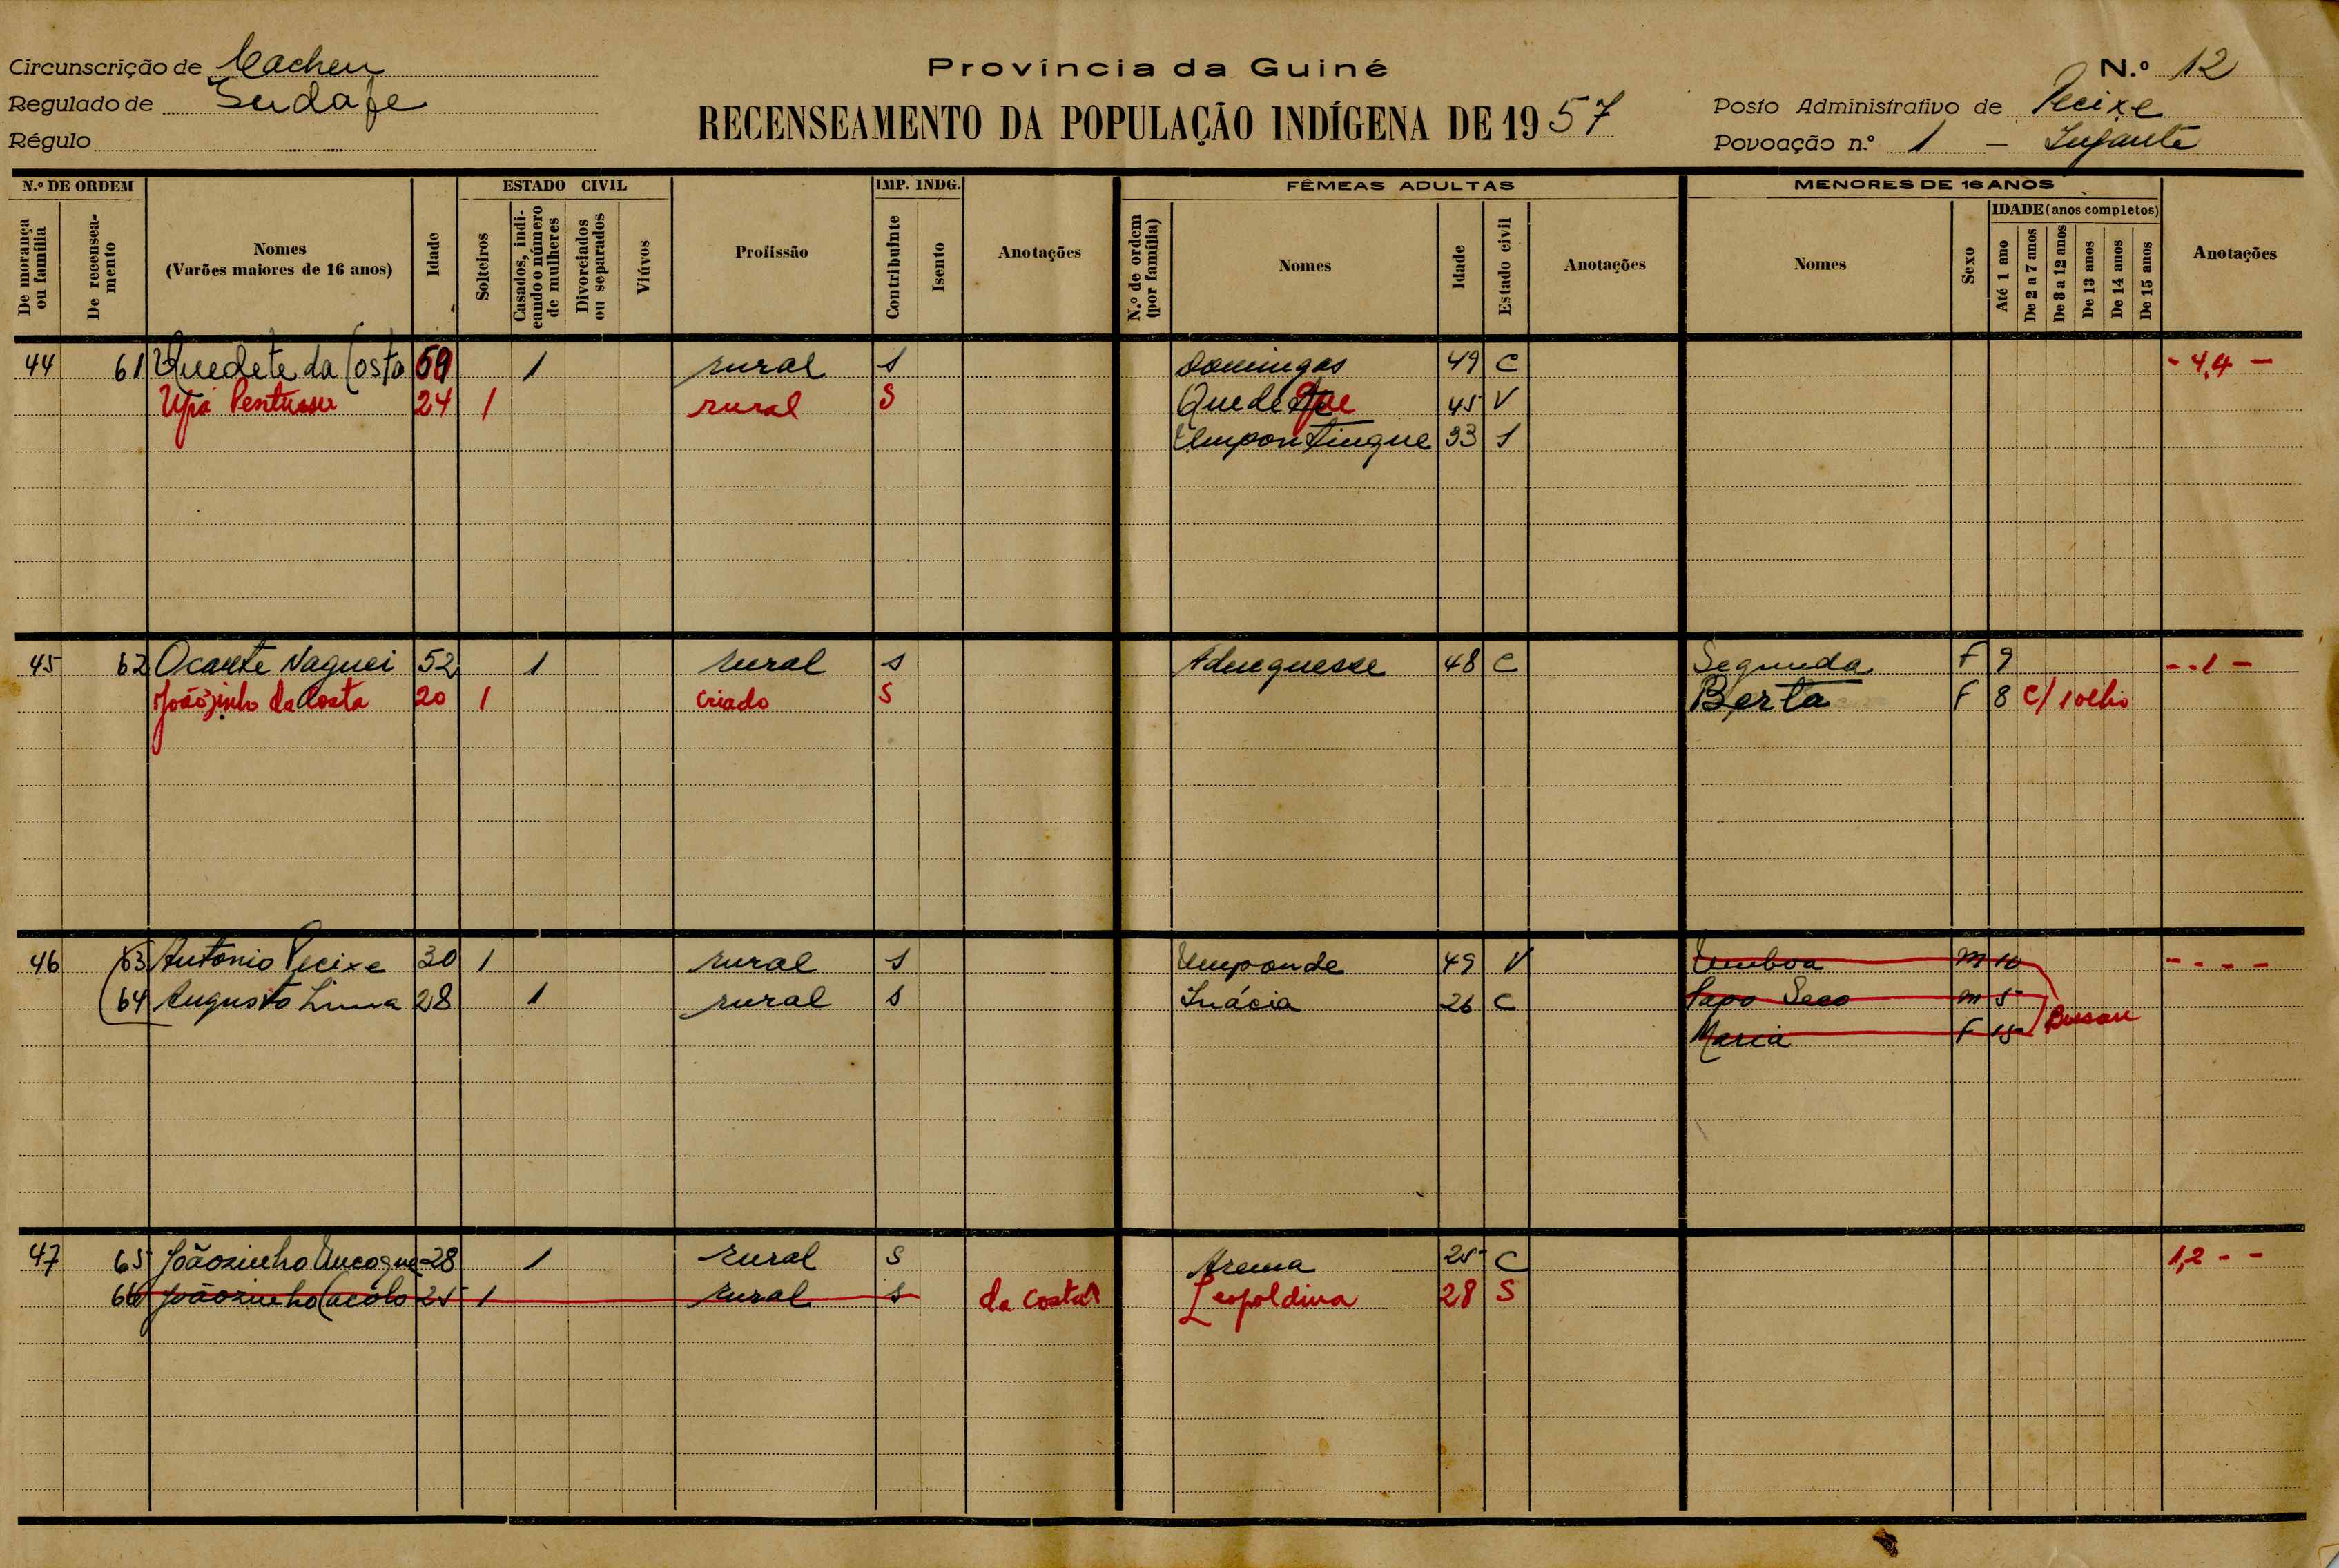 Circunscrição de Cacheu
Regulado de
Régulo
Província da Guiné
RECENSEAMENTO DA POPULAÇÃO INDÍGENA DE 1957
N.º 12
Posto Administrativo de Pecixe
Povoação n.º 1 –
N.º DE ORDEM
De morança ou família
De recenseamento
Nomes
(Varões maiores de 16 anos)
Idade
ESTADO CIVIL
Solteiros
Casados, indicando o número de mulheres
Divorciados ou separados
Viúvos
Profissão
IMP. INDG.
Contribuinte
Isento
Anotações
FÊMEAS ADULTAS
N.º de ordem (por família)
Nomes
Idade
Estado civil
Anotações
MENORES DE 16 ANOS
Nomes
Sexo
IDADE (anos completos)
Até 1 ano
De 2 a 7 anos
De 8 a 12 anos
De 13 anos
De 14 anos
De 15 anos
Anotações
44 61 Quedete da Costa 1 rural s Domingas 49 C - 4,4 -
Upá 24 1 rural S 45 V
Umpontingue 33 s
45 62 Ocante Naguei 52 1 rural s Adueguesse 48 C Segunda F 9 - - 1 -
Joãozinho da Costa 20 1 criado S Berta F 8 c/ 1 olho
46 63 Antonio Pecixe 30 1 rural s Umponde 49 V Umboa m 10 - - - -
64 Augusto Lima 28 1 rural s Inácia 26 C Papo Seco m 5
Maria F 15
47 65 Joãozinho Uncogne 28 1 rural S Arema 25 C 1,2 - -
66 Joãozinho Cacolo 25 1 rural s da Costa Leopoldina 28 S